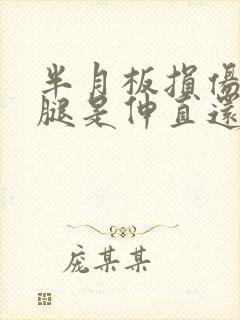 半月板損傷
腿是伸直還
庞某某